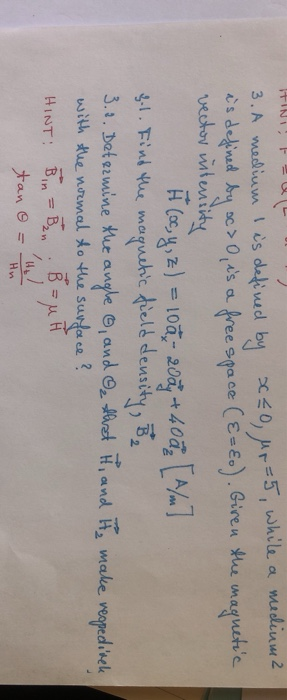 3. A medium 1 is defined by x ≤ 0, μr = 5, while a medium 2
is defined by x > 0, is a free space (ε = ε0). Given the magnetic
vector intensity
H⃗(x, y, z) = 10a⃗x - 20a⃗y + 40a⃗z [A/m]
3.1. Find the magnetic field density, B⃗2
3.2. Determine the angle Θ1 and Θ2 that H⃗1 and H⃗2 make respectively,
with the normal to the surface?
HINT: B⃗1n = B⃗2n ; B⃗ = μH⃗
tan Θ = Ht / Hn